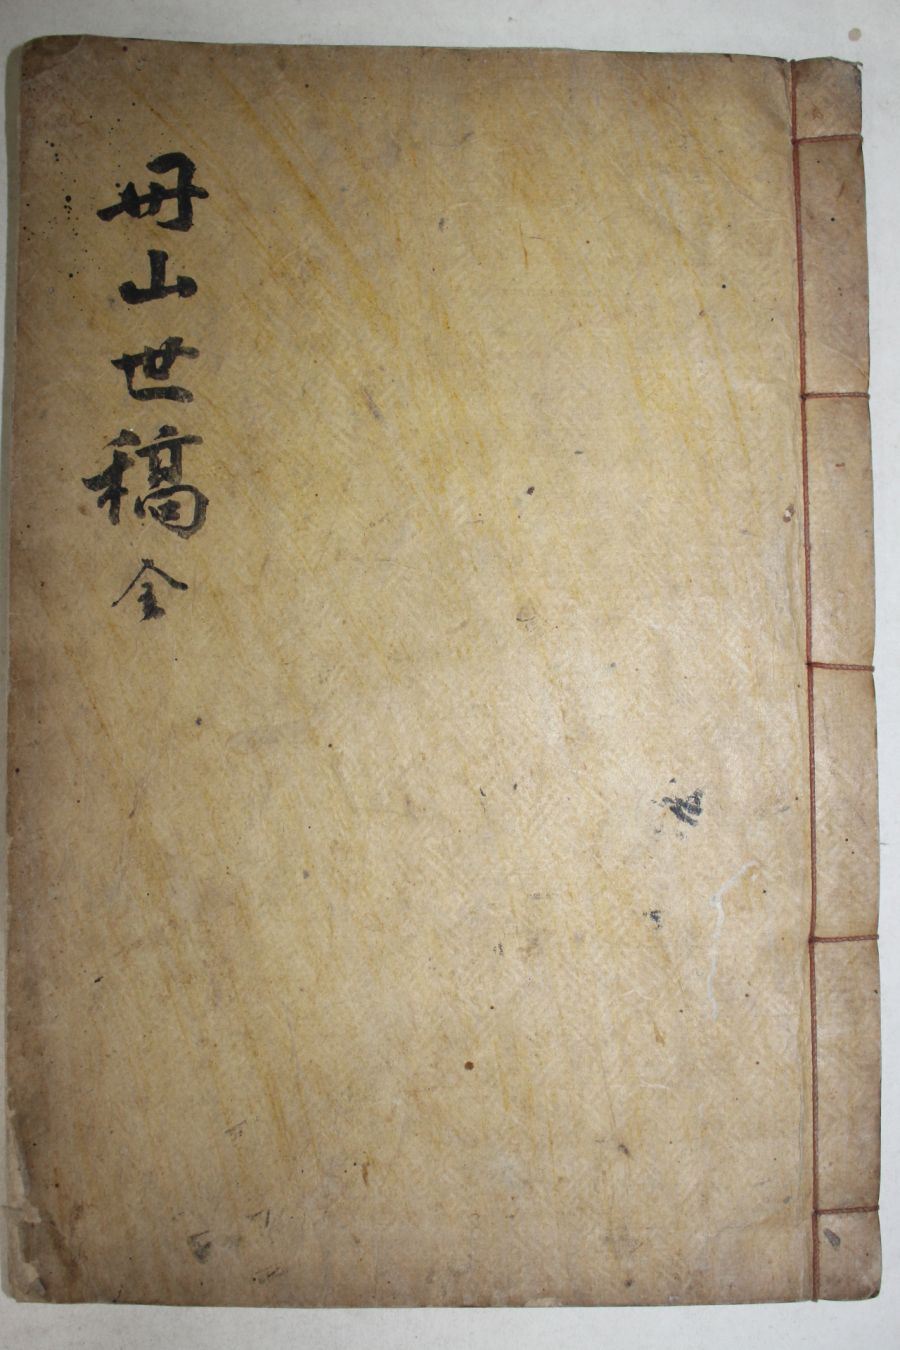 冊山世稿 全